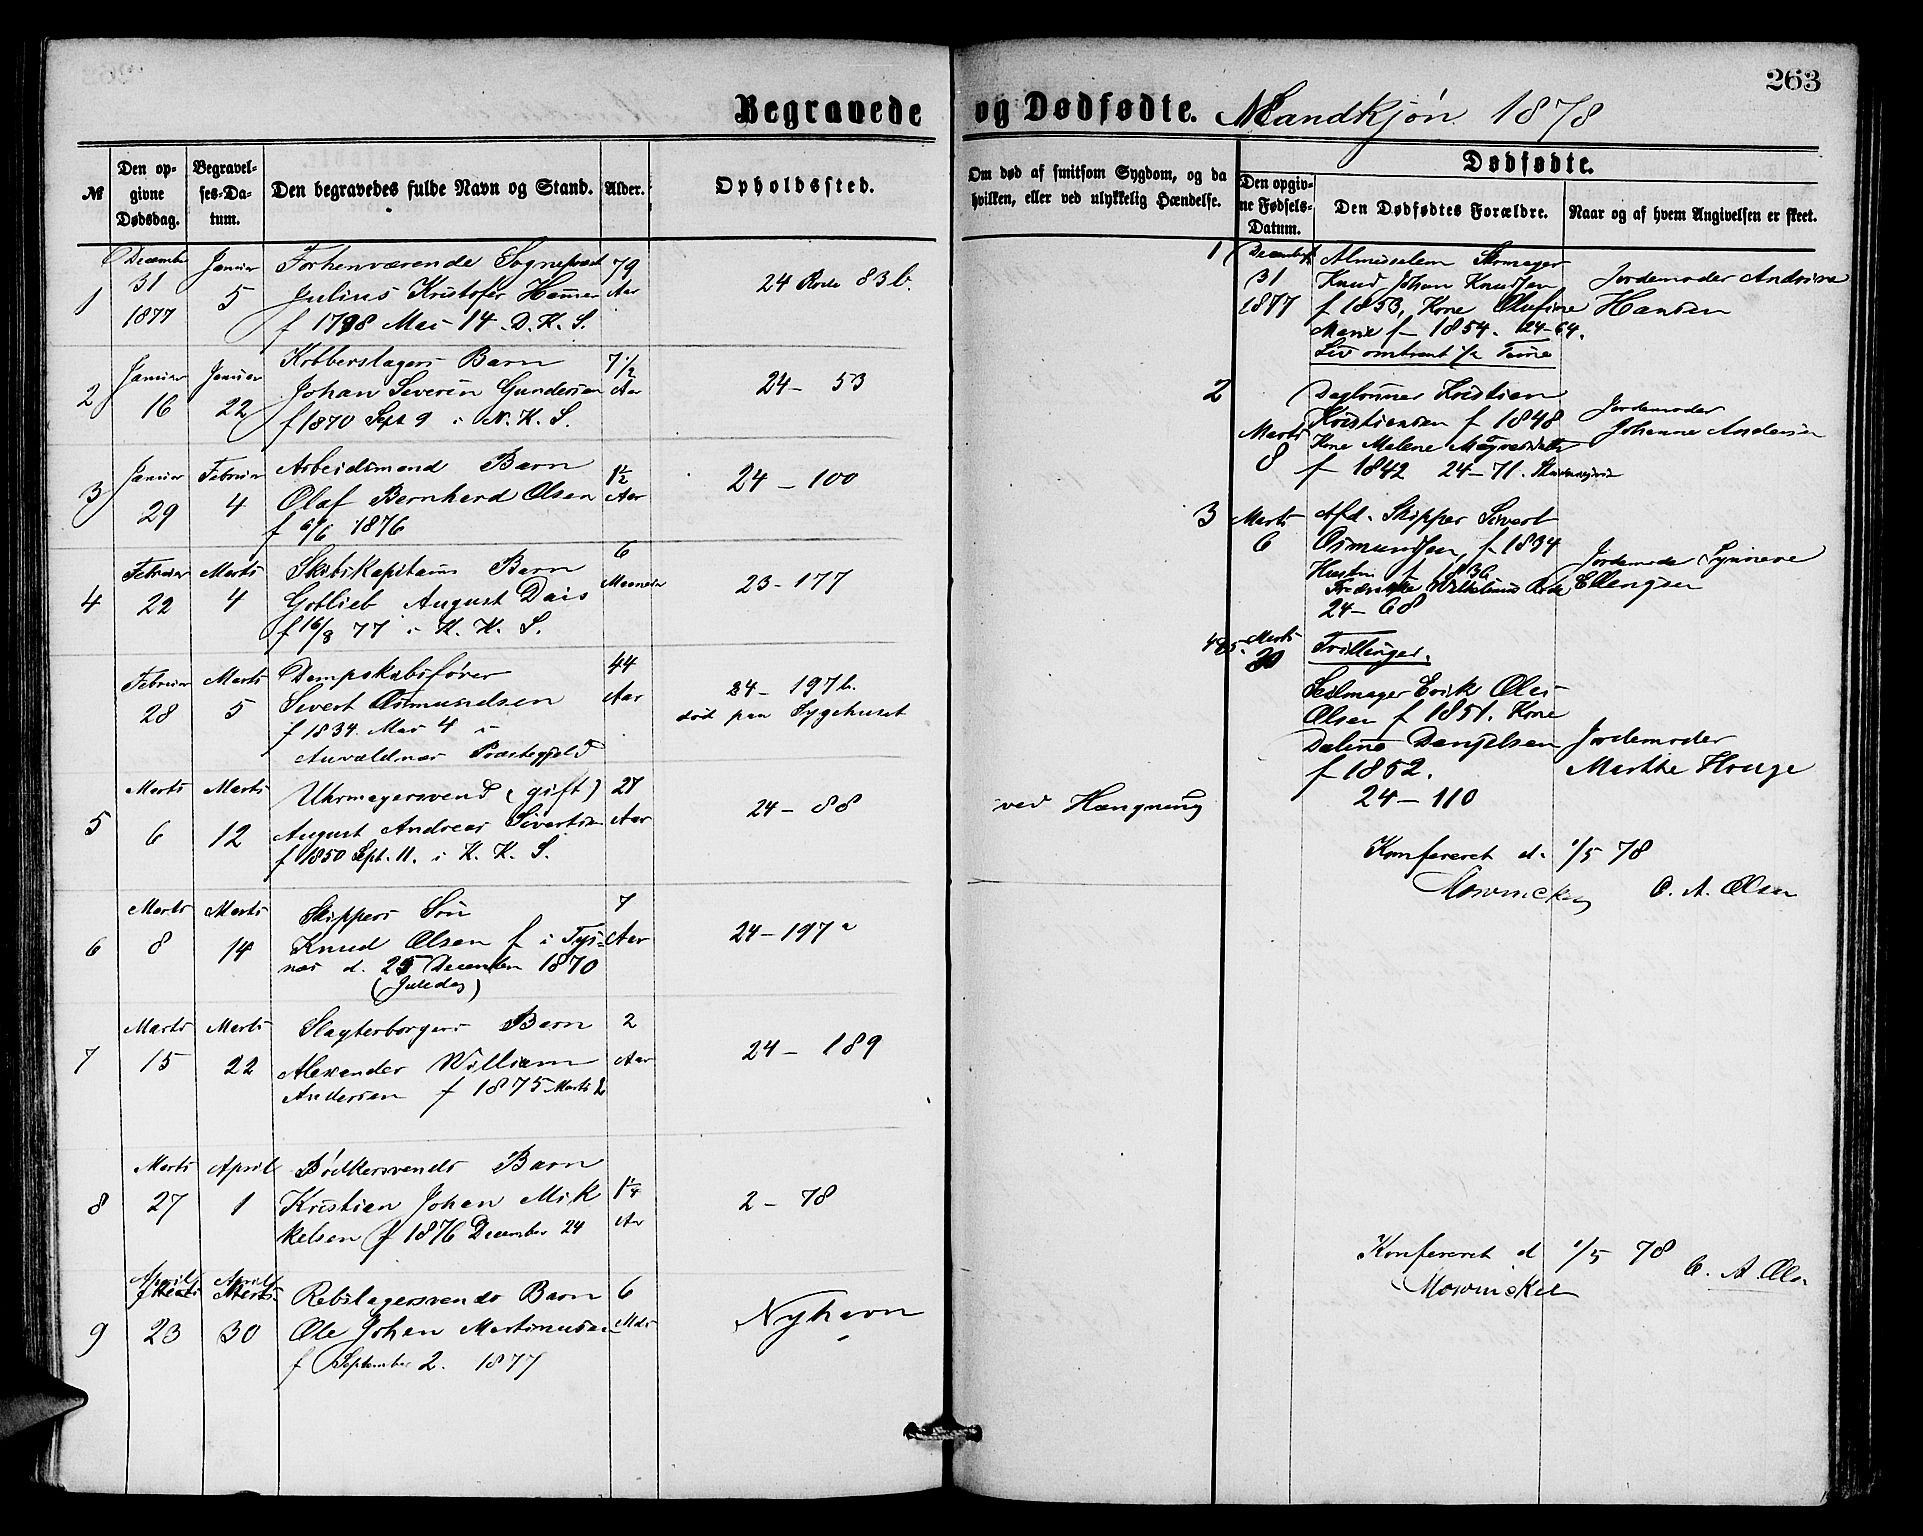 263
Begravede og Dødfødte. Mandkjøn 1878
№
Den opgivne Dødsdag.
Begravelses-Datum.
Den begravedes fulde Navn og Stand.
Alder.
Opholdssted.
Om død af smitsom Sygdom, og da hvilken, eller ved ulykkelig Hændelse.
Dødfødte.
Den opgivne Fødsels-Datum.
Den Dødfødtes Forældre.
Naar og af hvem Angivelsen er skeet.
1
December 31 1877
Januar 5
Forhenværende Sogneprest
Julius Kristofer Hammer
f 1798 Mai 14. D. K. S.
79 Aar
24 Rode 83 b.
2
Januar 16
Januar 22
Kobberslagers Barn
Johan Severin Gundersen
f 1870 Sept 9 i N. K. S.
7 1/2 Aar
24 - 53
3
Januar 29
Februar 4
Arbeidsmand Barn
Olaf Bernhard Olsen
f 6/6 1876
1 1/2 Aar
24 - 100
4
Februar 22
Marts 4
Skibskapitains Barn
Gotlieb August Dais
f 16/8 77 i K. K. S.
6 Maaneder
23 - 177
Februar 28
Marts 5
Dampskibsfører
Sivert Osmundsen
f 1834 Mai 4 i
Auvaldnæs Præstegjeld
44 Aar
24 - 197 b.
død paa Sygehuset
5
Marts 6
Marts 12
Uhrmagersvend (gift)
August Andreas Sivertsen
f 1850 Sept. 11. i K. K. S.
27 Aar
24 - 88
ved Hængning
6
Marts 8
Marts 14
Skippers Søn
Knud Olsen f i Tys-
næs d. 25 December 1870
(Juledag)
7 Aar
24 - 197 a
7
Marts 15
Marts 22
Slagterborgers Barn
Alexander William
Andersen f 1875 Marts 2
2 Aar
24 - 189
8
Marts 27
April 1
Bødkersvends Barn
Kristian Johan Mik
kelsen f 1876 December 24
1 1/4 Aar
2 - 78
9
April 23
April 30
Rebslagersvends Barn
Ole Johan Martinusen
f September 2. 1877
6 Mdr
Nyhavn
1
December 31 1877
Knud Johan Knudsen
f 1853, Kone Olufine
Marie f 1854. 24-64.
Liv omtrent 1/2 Time
Jordemoder Andrine
Hansen
2
Marts 8
Daglønner Kristian
Kristiansen f 1848
Kone Malene
f 1842 24-71.
Jordemoder
Johanne Andersen
3
Marts 6
Afd. Skipper Sivert
Osmundsen, f. 1834
Hustru f 1836
Fredrikke Wilhelmine Rode
24 - 68
Jordemoder Synneve
Ellengsen
4 & 5.
Marts 30
Trillinger.
Seilmager Erik Olai
Olsen f 1851. Kone
Daline Danjelsen
f 1852.
24 - 110
Jordemoder
Marthe Houge
Konfereret d. 1/5 78
Mowinckel C. A. Olsen
Konfereret d 1/5 78
Mowinckel C. A. Olsen